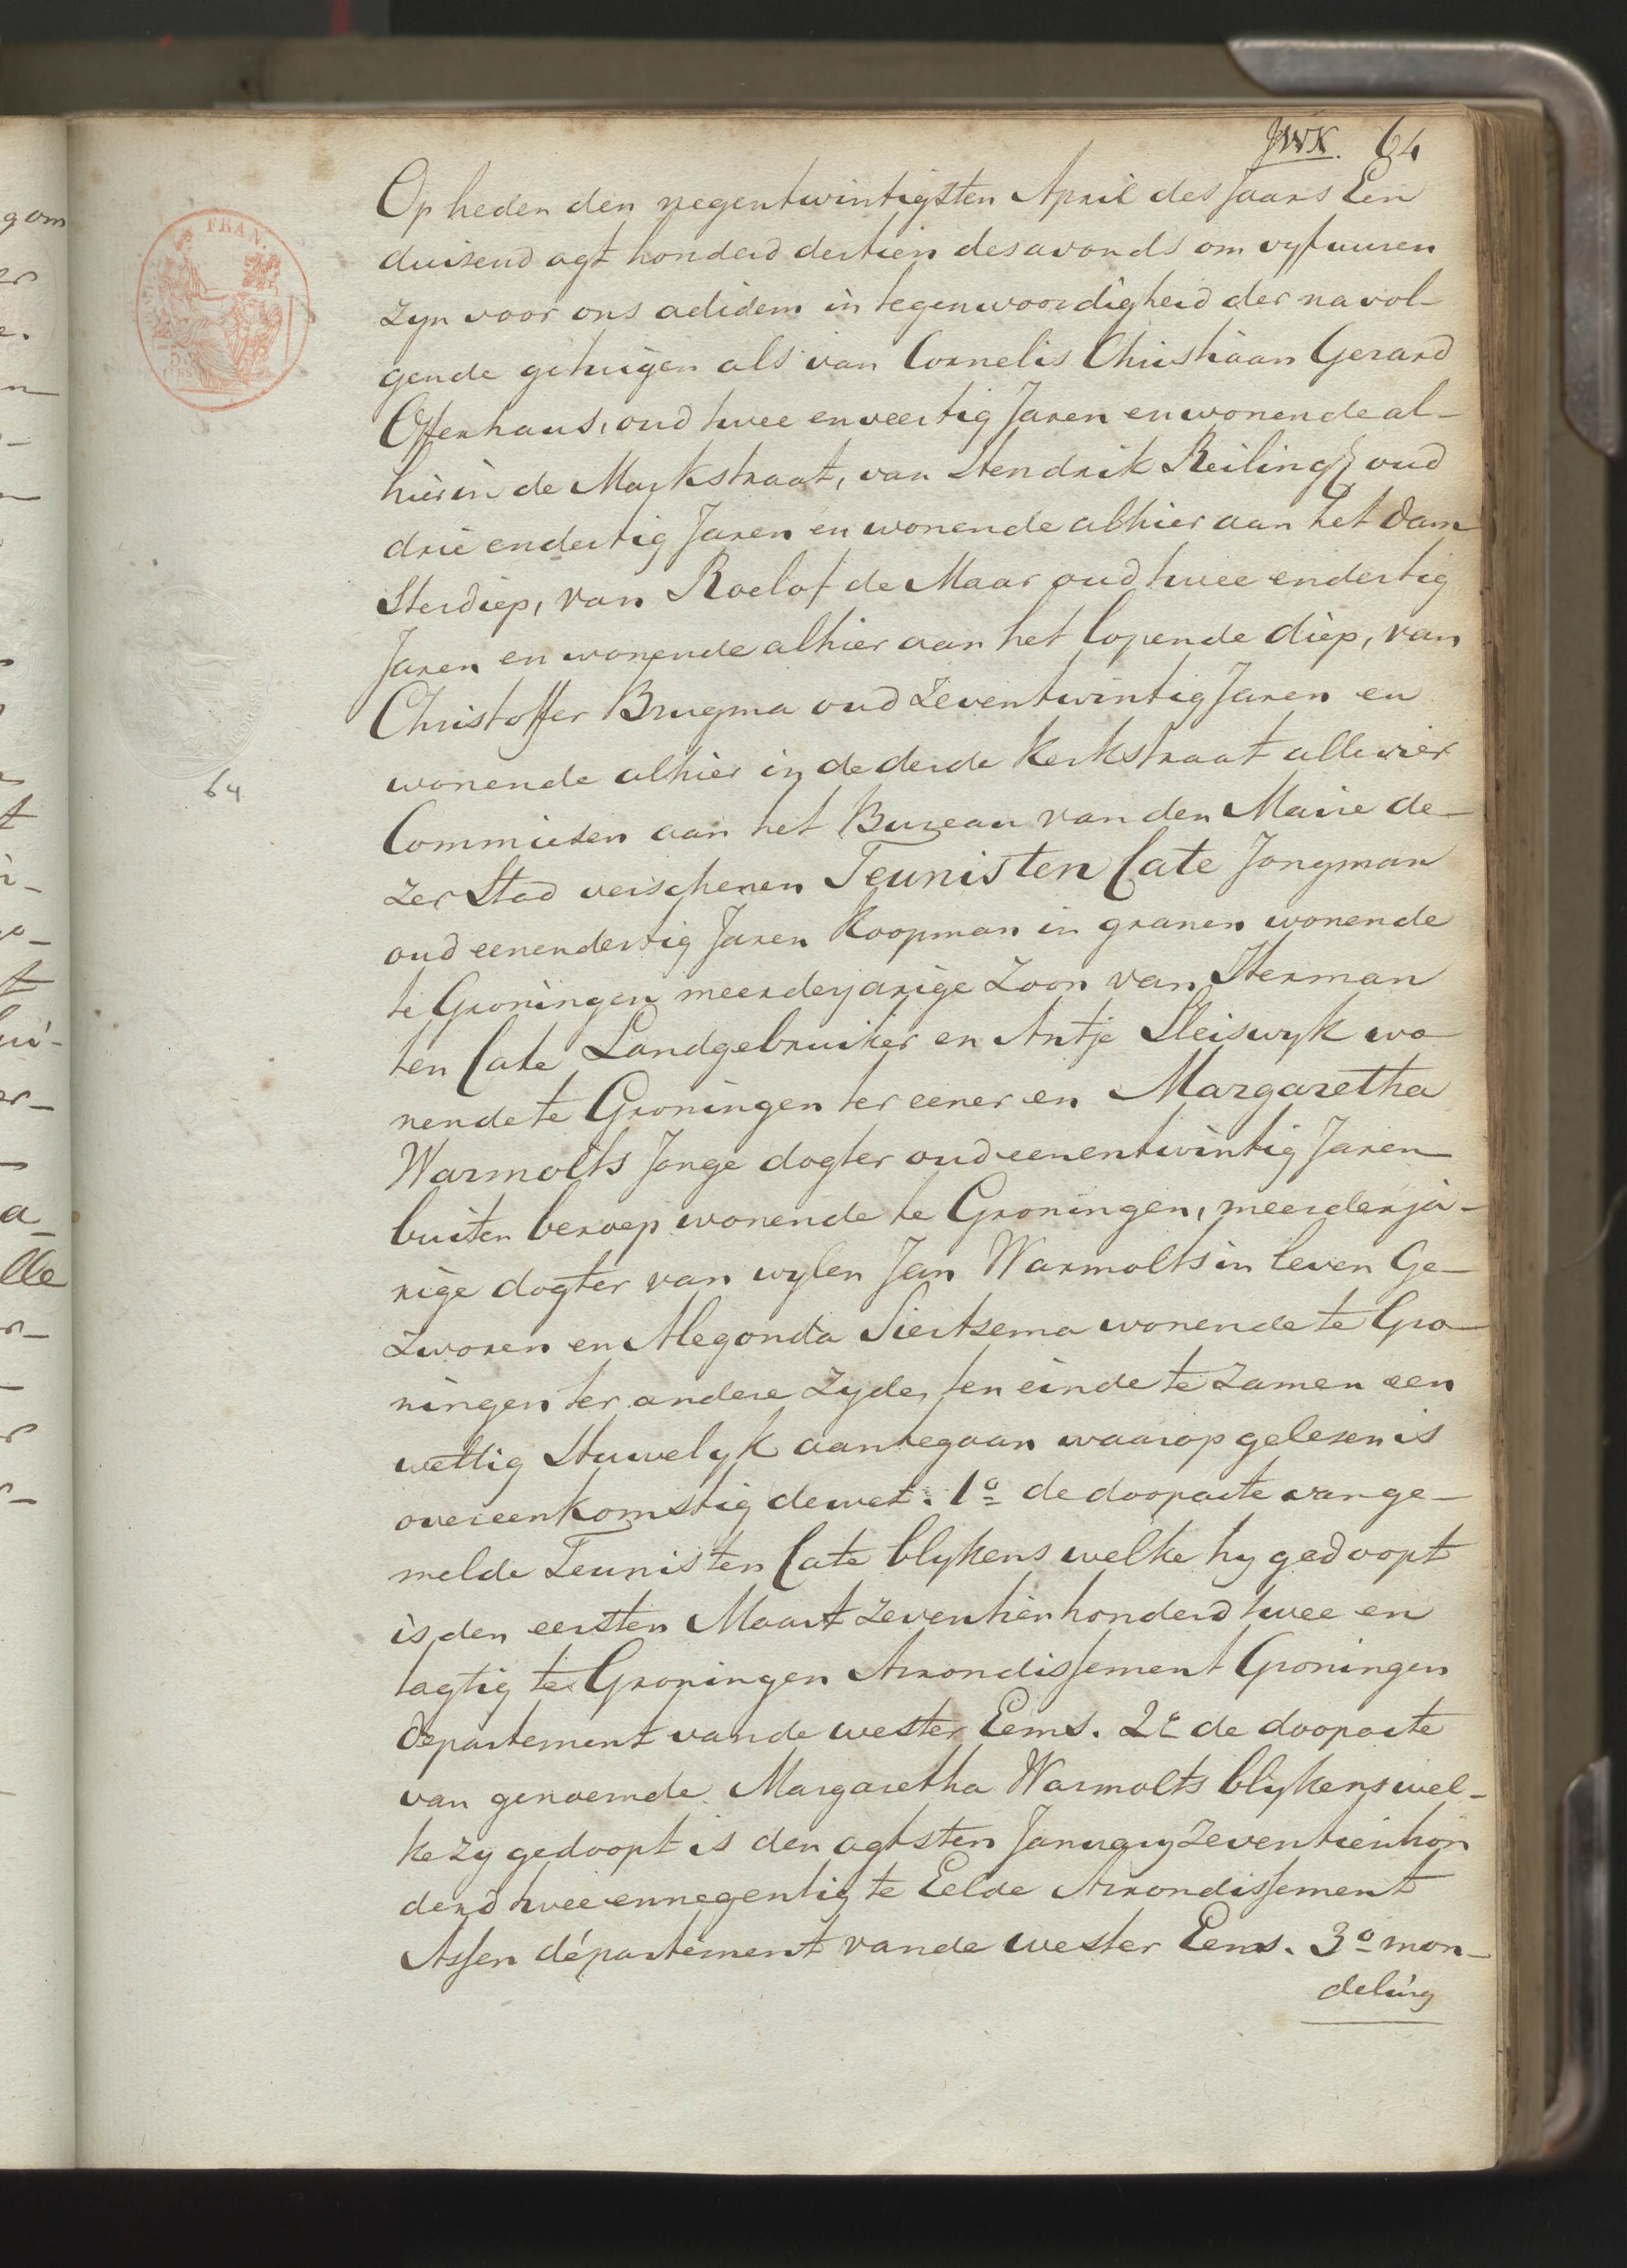 JWK. 64
FRAN.
Op heden den negentwintigsten April des Jaars Een
duizend agt honderd dertien des avonds om vyf uuren
zyn voor ons adidem in tegenwoordigheid der navol-
gende getuigen als van Cornelis Christiaan Gerard
Offerhaus, oud twee enveertig Jaren en wonende al-
hier in de Markstraat, van Hendrik Reiling, oud
drie endertig Jaren en wonende alhier aan het Dam
sterdiep, van Roelof de Maar oud twee endertig
Jaren en wonende alhier aan het lopende diep, van
Christoffer Brugma oud zeventwintig Jaren en
wonende alhier in de derde Kerkstraat alle vier
64
Commiesen aan het Bureau van den Maire de-
zer Stad verschenen Teunis ten Cate Jongman
oud eenendertig Jaren Koopman in granen wonende
te Groningen meerderjarige Zoon van Herman
ten Cate Landgebruiker en Antje Sleiswyk wo
nende te Groningen ter eener en Margaretha
Warmolts Jonge dogter oud eenentwintig Jaren
buiten beroep wonende te Groningen, meerderja-
rige dogter van wylen Jan Warmolts in leven Ge-
zworen en Alegonda Siertsema wonende te Gro
ningen ter andere zyde, ten einde te zamen een
wettig Huwelyk aantegaan waarop gelezen is
overeenkomstig de wet. 1o de doopacte van ge-
melde Teunis ten Cate blykens welke hy gedoopt
is den eersten Maart zeventien honderd twee en
tagtig te Groningen Arrondissement Groningen
departement van de wester Eems. 2e de doopacte
van genoemde Margaretha Warmolts blykens wel-
ke zy gedoopt is den agtsten January zeventienhon
derd tweeennegentig te Eelde Arrondissement
Assen département van de wester Eems. 3o mon-
deling